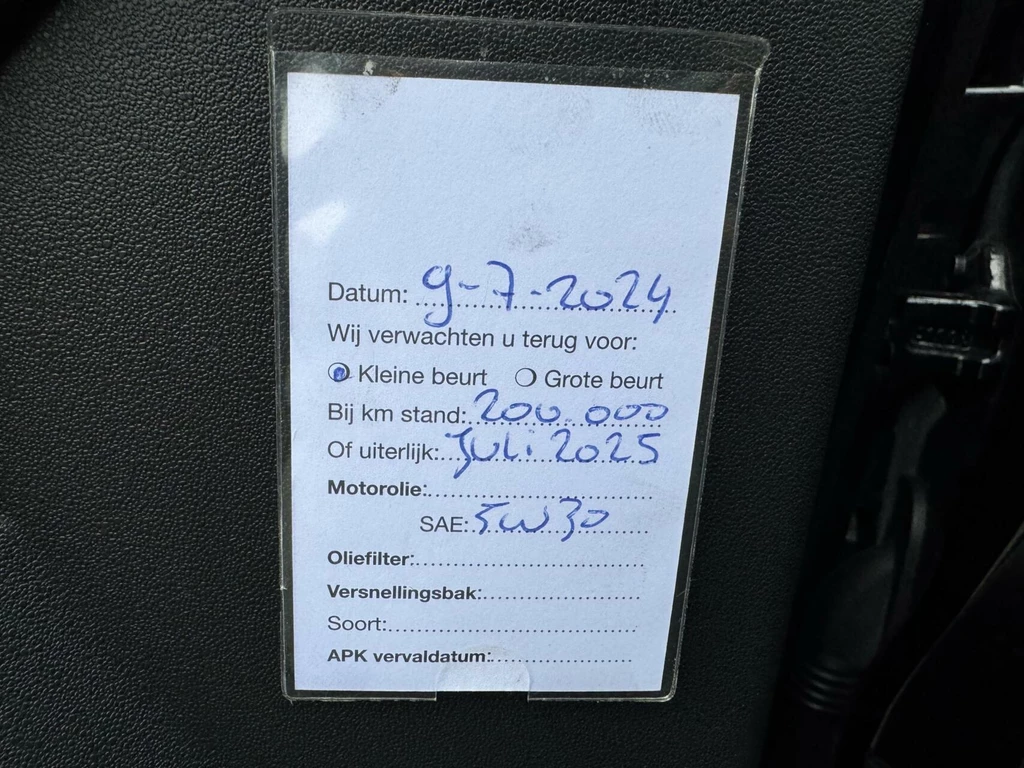 Datum: 9-7-2024
Wij verwachten u terug voor:
Kleine beurt Grote beurt
Bij km stand: 200.000
Of uiterlijk: Juli 2025
Motorolie:
SAE: 5w30
Oliefilter:
Versnellingsbak:
Soort:
APK vervaldatum: